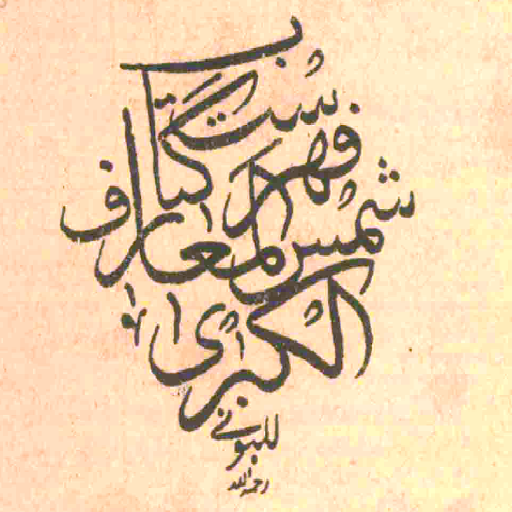 فهرست كتاب
شمس المعارف
الكبرى
للبوني
رحمه الله